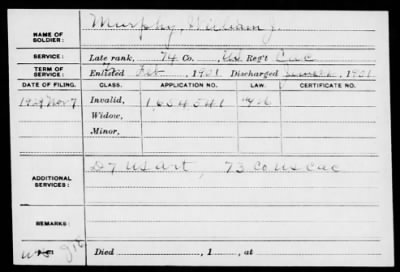 NAME OF SOLDIER: Murphy, William J.
SERVICE: Late rank, 74 Co., U.S. Reg't C a c
TERM OF SERVICE: Enlisted Feb , 1901 Discharged , 1901
DATE OF FILING. CLASS. APPLICATION NO. LAW. CERTIFICATE NO.
Nov 7 Invalid, 1,634,541
Widow,
Minor,
ADDITIONAL SERVICES: D 7 U S art, 73 Co U S C a c
REMARKS:
Died , 1 , at